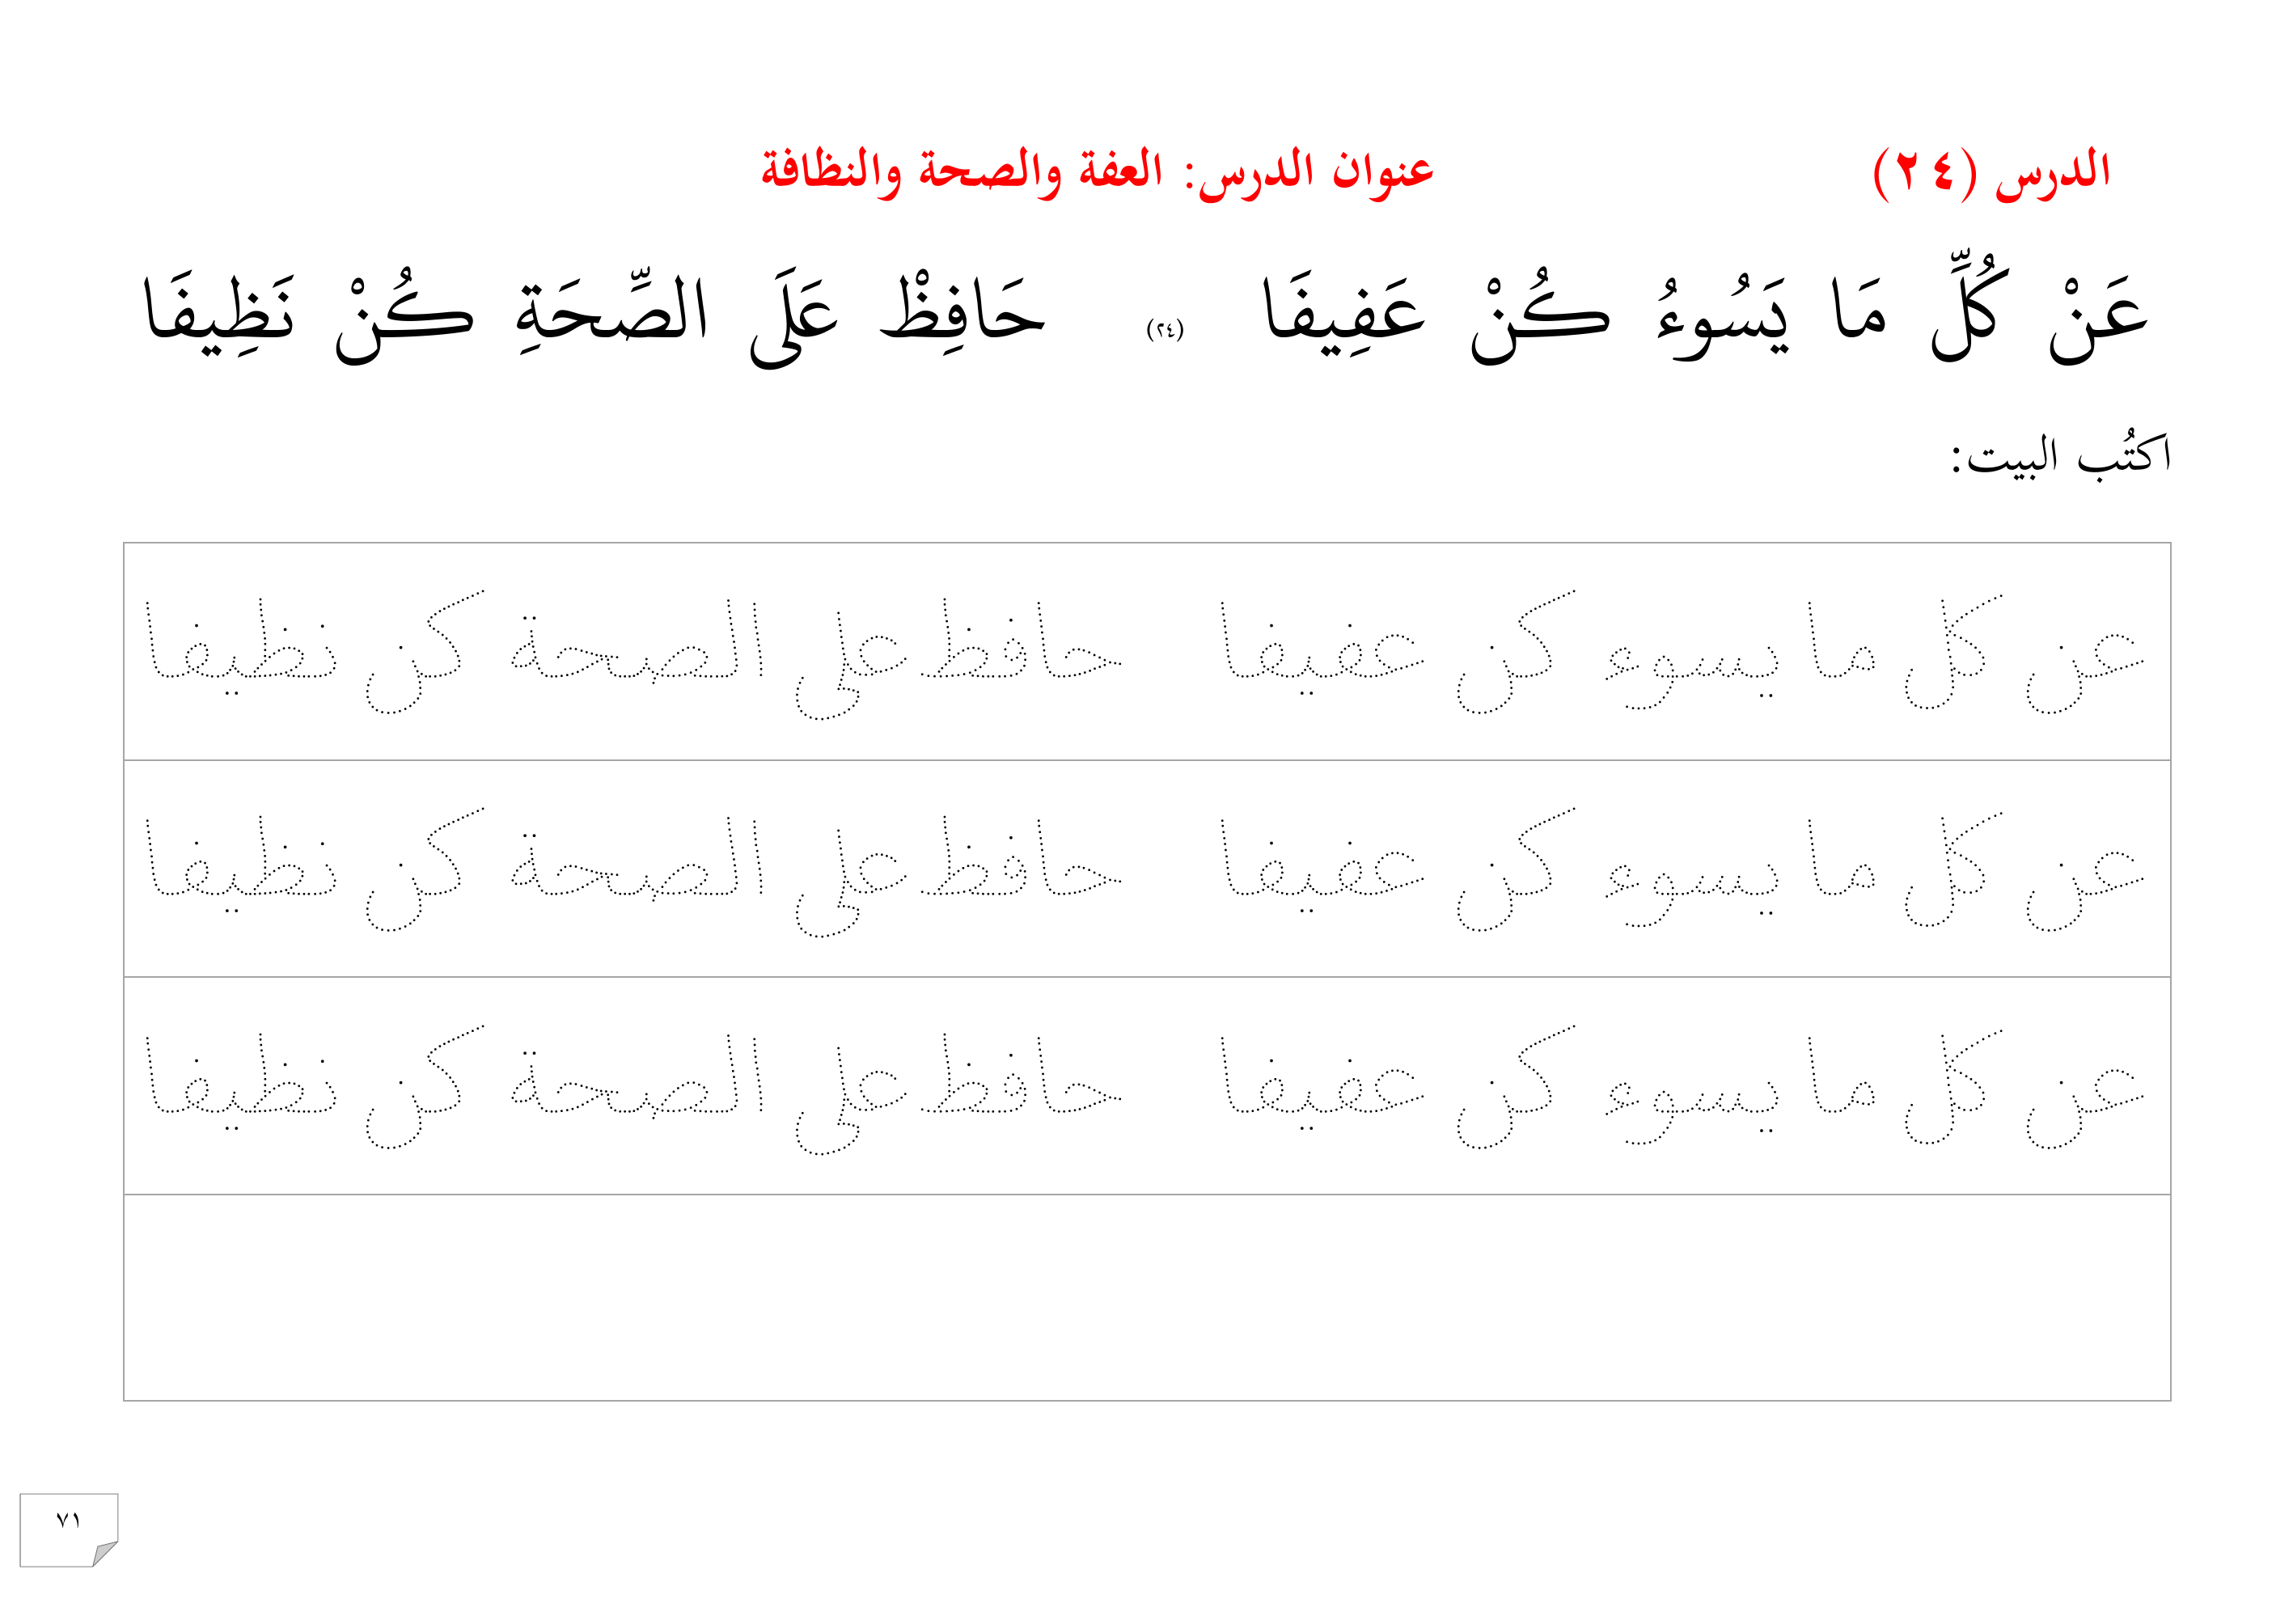 الدرس (٢٤) عنوان الدرس: العفة والصحة والنظافة
عَنْ كُلِّ مَا يَسُوءُ كُنْ عَفِيفَا (٢٤) حَافِظْ عَلَى الصِّحَةِ كُنْ نَظِيفَا
اكتُب البيت:
عن كل ما يسوء كن عفيفا حافظ على الصحة كن نظيفا
عن كل ما يسوء كن عفيفا حافظ على الصحة كن نظيفا
عن كل ما يسوء كن عفيفا حافظ على الصحة كن نظيفا
٧١